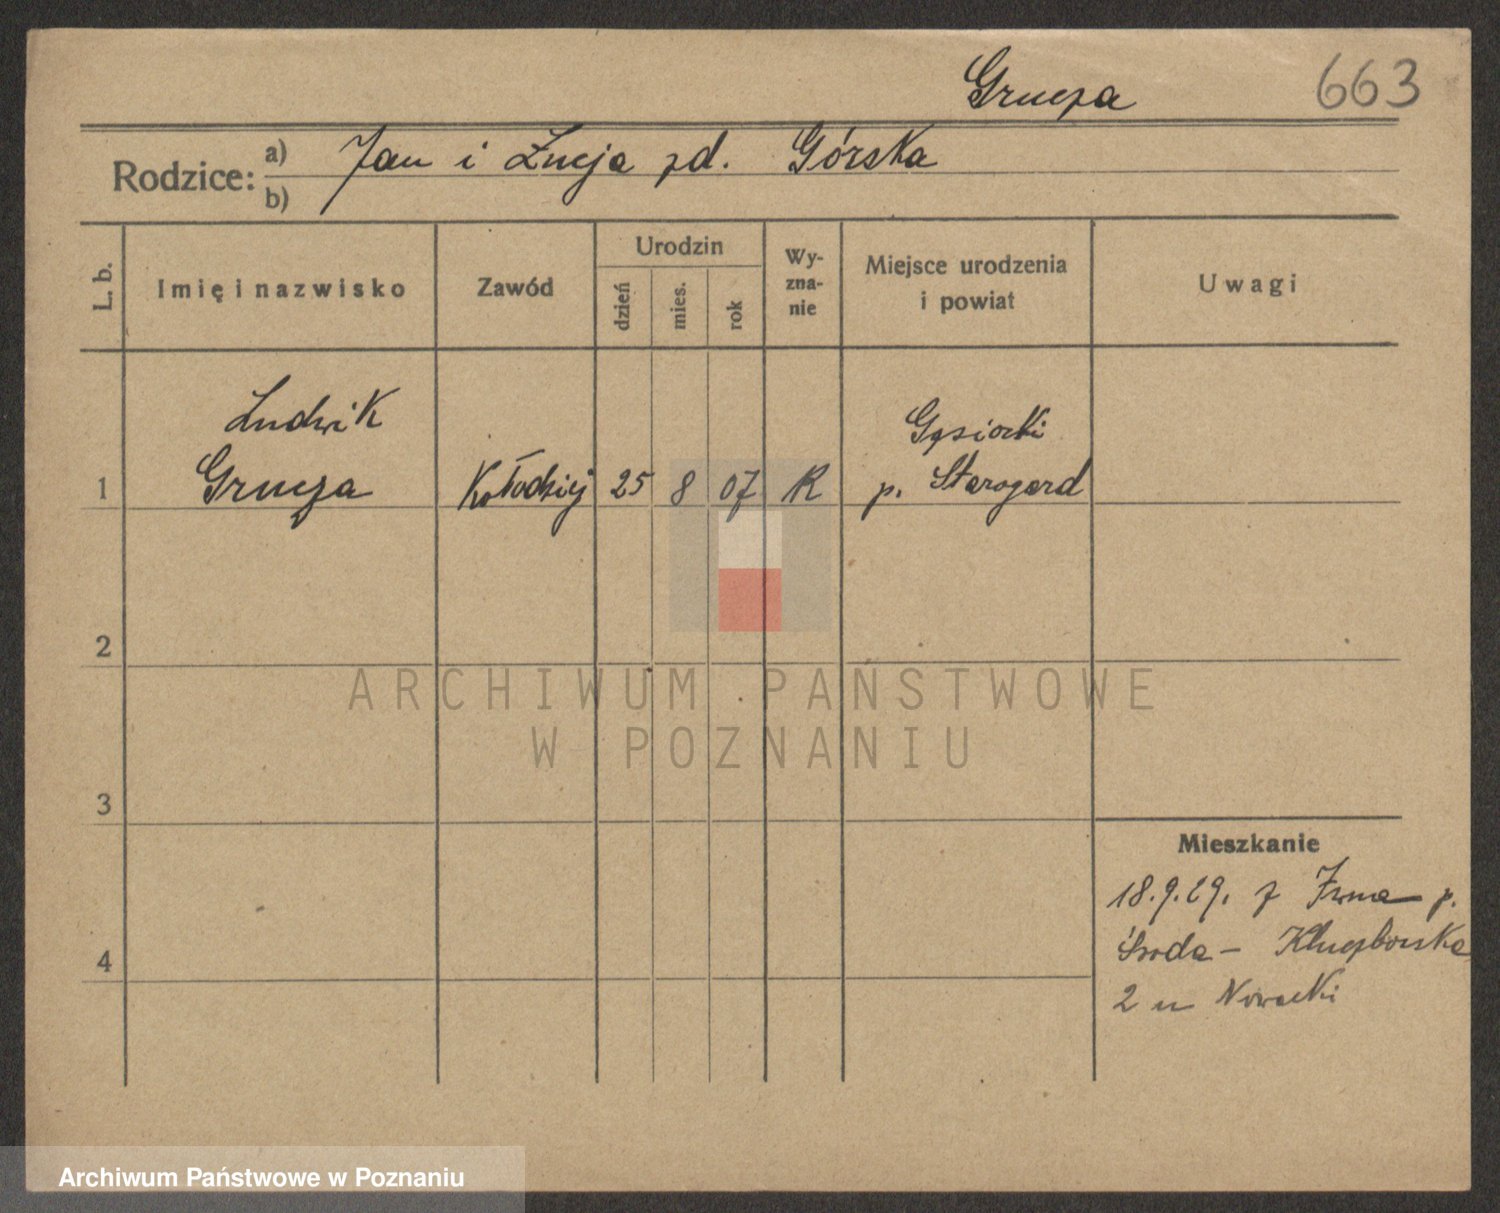 Grucza 663
Rodzice: a) Jan i Łucja zd. Górska
b)
L. b. Imię i nazwisko Zawód Urodzin dzień mies. rok Wy-zna-nie Miejsce urodzenia i powiat Uwagi
Ludwik Gąsiorki
1 Grucza Kołodziej 25 8 07 R p. Starogard
2
ARCHIWUM PAŃSTWOWE
W POZNANIU
3
Mieszkanie
18.9.29. z p.
Środa – Kluczborska
4
2 u Nowacki
Archiwum Państwowe w Poznaniu